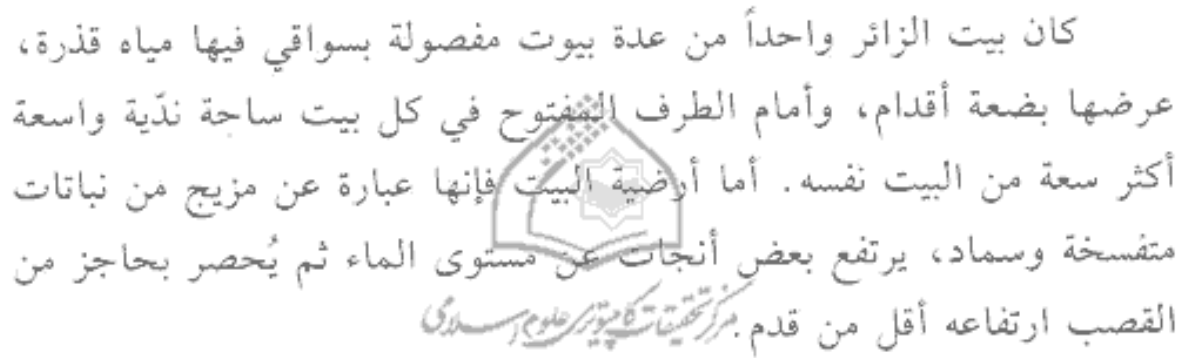 كان بيت الزائر واحداً من عدة بيوت مفصولة بسواقي فيها مياه قذرة،
عرضها بضعة أقدام، وأمام الطرف المفتوح في كل بيت ساحة ندّية واسعة
أكثر سعة من البيت نفسه. أما أرضية البيت فإنها عبارة عن مزيج من نباتات
متفسخة وسماد، يرتفع بعض أنجات عن مستوى الماء ثم يُحصر بحاجز من
القصب ارتفاعه أقل من قدم.
مرکز تحقیقات کامپیوتری علوم اسلامی